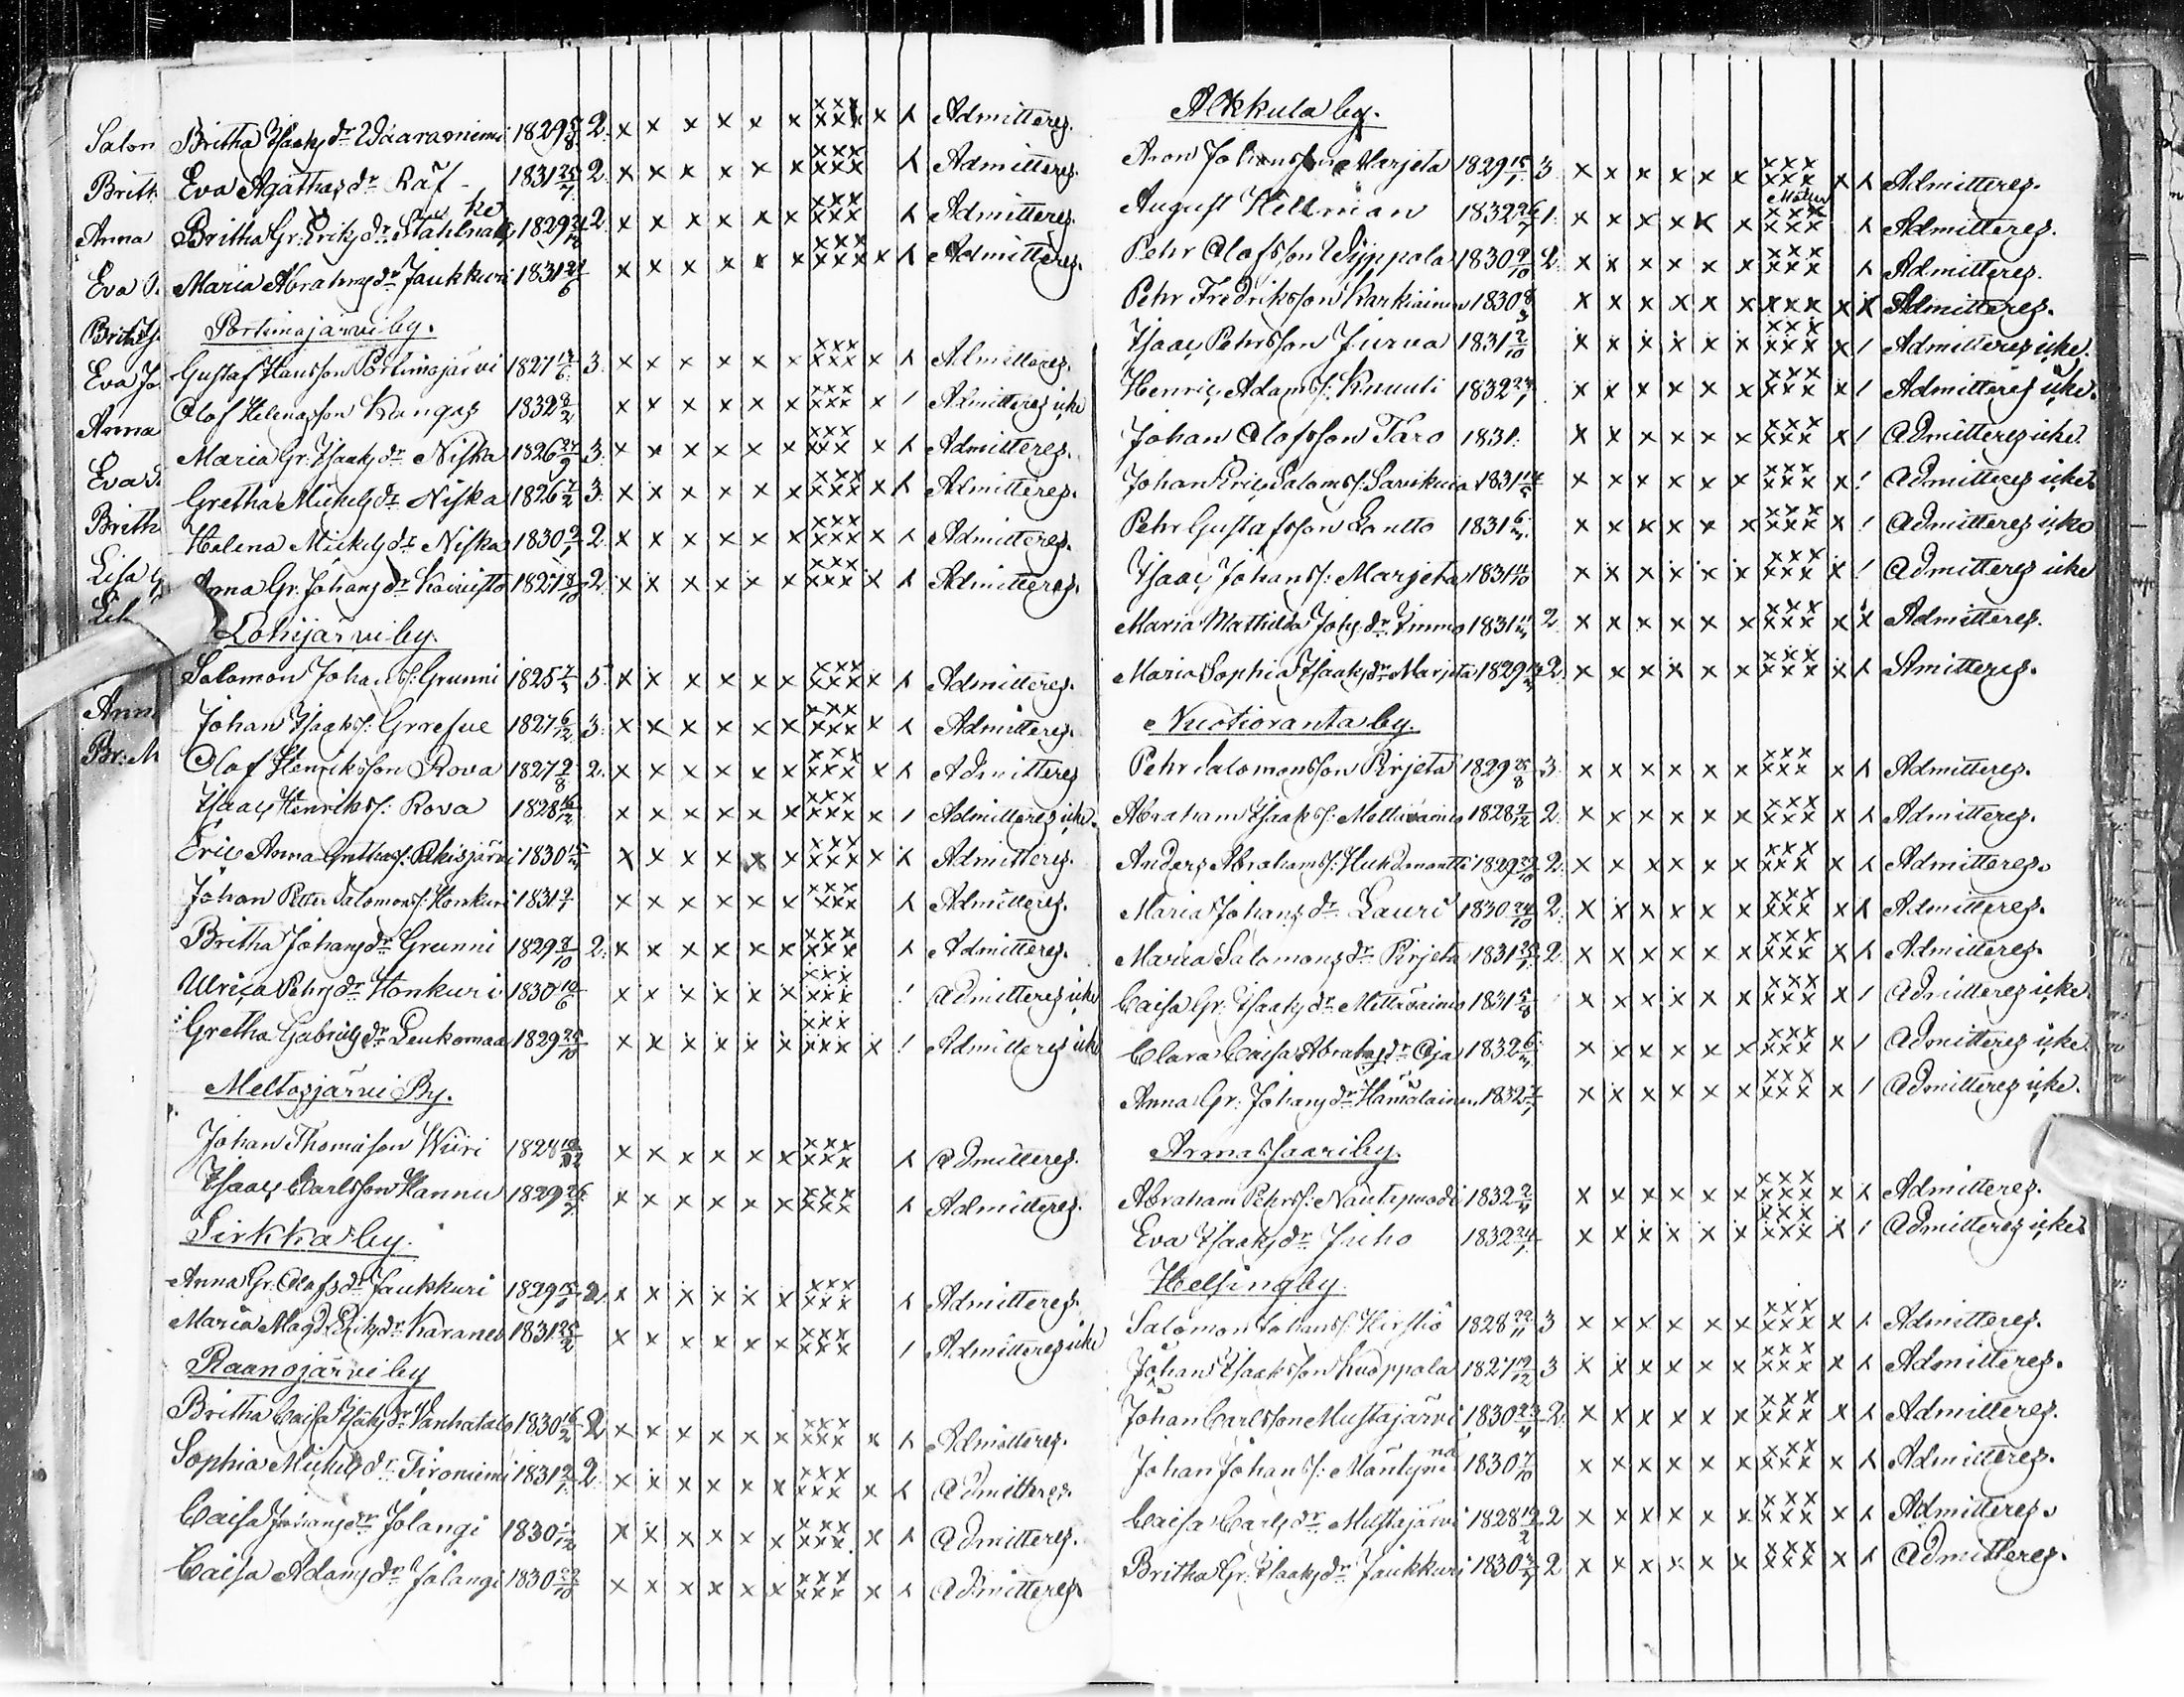 Salon
Brith
Anna
Eva
Brita
Eva Jo
Anna
Eva
Brith
Lisa G
Anna
Br: M
Britha Isaaks dr Waaraniemi 1829 5/8 2. x x x x x x xxx xxx x λ Admitteres.
Eva Agathas dr Räf 1831 25/7 2. x x x x x x xxx xxx λ Admitteres.
Britha Gr. Eriks dr Stahlnacke 1829 2. x x x x x x xxx xxx λ Admitteres.
Maria Abrahms dr Jaukkuri 1831 x x x x x x xxx xxx x λ Admitteres.
Portimojärvi by.
Gustaf Hansson Portimojärvi 1827 3. x x x x x x xxx xxx x λ Admitteres.
Olof Helenasson Kangas 1832 2/2 x x x x x x xxx xxx x / Admitteres icke
Maria Gr. Isaaks dr Niska 1826 27/9 3. x x x x x x xxx xxx x λ Admitteres.
Gretha Mickels dr Niska 1826 3. x x x x x x xxx xxx x λ Admitteres.
Helena Mickels dr Niska 1830 2. x x x x x x xxx xxx x λ Admitteres.
Anna Gr. Johans dr Koivisto 1827 2. x x x x x x xxx xxx x λ Admitteres.
Lohijärvi by.
Salomon Johans s: Grunni 1825 5. x x x x x x xxx xxx x λ Admitteres.
Johan Isaaks s: Grrefve 1827 6/12 3. x x x x x x xxx xxx x λ Admitteres.
Olof Henriksson Rova 1827 9/8 2. x x x x x x xxx xxx x λ Admitteres
Isaac Henriks s: Rova 1828 16/12 x x x x x x xxx xxx x / Admitteres icke.
Eric Anna Grethas s: Pekisjärvi 1830 x x x x x x xxx xxx x λ Admitteres.
Johan Petter Salomons s: Honkuri 1831 2/1 x x x x x x xxx xxx λ Admitteres.
Britha Johans dr Grunni 1829 8/10 2. x x x x x x xxx xxx λ Admitteres.
Ulrica Pehrs dr Honkuri 1830 10/6 x x x x x x xxx xxx / Admitteres icke
Gretha Gabriels dr Leukomaa 1829 25/10 x x x x x x xxx xxx x / Admitteres icke
Meltosjärvi By.
Johan Thomasson Wiiri 1828 x x x x x x xxx xxx λ Admitteres.
Isaac Carlsson Hannu 1829 x x x x x x xxx xxx λ Admitteres.
Sirkka by.
Anna Gr. Olofs dr Jaukkuri 1829 2. x x x x x x xxx xxx λ Admitteres.
Maria Magd. Eriks dr Karanes 1831 25/2 x x x x x x xxx xxx / Admitteres icke
Raanojärvi by
Britha Caisa Isaks dr Vanhatalo 1830 16/2 2 x x x x x x xxx xxx x λ Admitteres.
Sophia Mickels dr Tironiemi 1831 2. x x x x x x xxx xxx x λ Admitteres.
Caisa Johans dr Jolangi 1830 1/12 x x x x x x xxx xxx x λ Admitteres.
Caisa Adams dr Jolangi 1830 22/10 x x x x x x xxx xxx x λ Admitteres.
Alkkula by.
Aron Johansson Marjeta 1829 3. x x x x x x xxx xxx x λ Admitteres.
August Hellman 1832 26/7 1. x x x x x x xxx xxx λ Admitteres.
Pehr Olofsson Wyppola 1830 9/10 2. x x x x x x xxx xxx λ Admitteres.
Pehr Fredriksson Karkiainen 1830 x x x x x x xxx x λ Admitteres.
Isaac Pehrsson Jurva 1831 2/10 x x x x x x xxx xxx x / Admitteres icke.
Henric Adams s: Knuuti 1832 x x x x x x xxx xxx x / Admitteres icke.
Johan Olofsson Taro 1831. x x x x x x xxx xxx x / Admitteres icke.
Johan Eric Saloms s: Sarvikuia 1831 x x x x x x xxx xxx x / Admitteres icke
Pehr Gustafsson Lantto 1831 x x x x x x xxx xxx x / Admitteres icke
Isaac Johans s: Marjeta 1831 x x x x x x xxx xxx x / Admitteres icke
Maria Mathilda Johs. dr Timmo 1831 2. x x x x x x xxx xxx x λ Admitteres.
Maria Sophia Isaaks dr Marjeta 1829 2. x x x x x x xxx xxx x λ Amitteres.
Nuotioranta by.
Pehr Salomonsson Pirjeta 1829 25/8 3. x x x x x x xxx xxx x λ Admitteres.
Abraham Isaaks s: Mettävainio 1828 2/12 2. x x x x x x xxx xxx x λ Admitteres.
Anders Abrahams s: Huhdanantti 1829 2. x x x x x x xxx xxx x λ Admitteres.
Maria Johans dr Lauri 1830 24/10 2. x x x x x x xxx xxx x λ Admitteres.
Maria Salomons dr Pirjeta 1831 2. x x x x x x xxx xxx x λ Admitteres.
Caisa Gr. Isaaks dr Mettävainio 1831 5/8 x x x x x x xxx xxx x / Admitteres icke.
Clara Caisa Abrahas dr Oja 1832 x x x x x x xxx xxx x / Admitteres icke.
Anna Gr. Johans dr Hämäläinen 1832 x x x x x x xxx xxx x / Admitteres icke.
Armassaari by.
Abraham Pehrs s: Nautipuodi 1832 x x x x x x xxx xxx x λ Admitteres.
Eva Isaaks dr Juho 1832 x x x x x x xxx xxx x / Admitteres icke
Helsingby.
Salomon Johans s: Hirstiö 1828 22/11 3 x x x x x x xxx xxx x λ Admitteres.
Johan Isaaksson Kuoppala 1827 12/12 3 x x x x x x xxx xxx x λ Admitteres.
Johan Carlsson Mustajärvi 1830 23/4 2. x x x x x x xxx xxx x λ Admitteres.
Johan Johans s: Mäntyniena 1830 7/10 x x x x x x xxx xxx x λ Admitteres.
Caisa Carls dr Mustajärvi 1828 12/2 2 x x x x x x xxx xxx x λ Admitteres.
Britha Gr. Isaaks dr Jaukkuri 1830 2 x x x x x x xxx xxx x λ Admitteres.